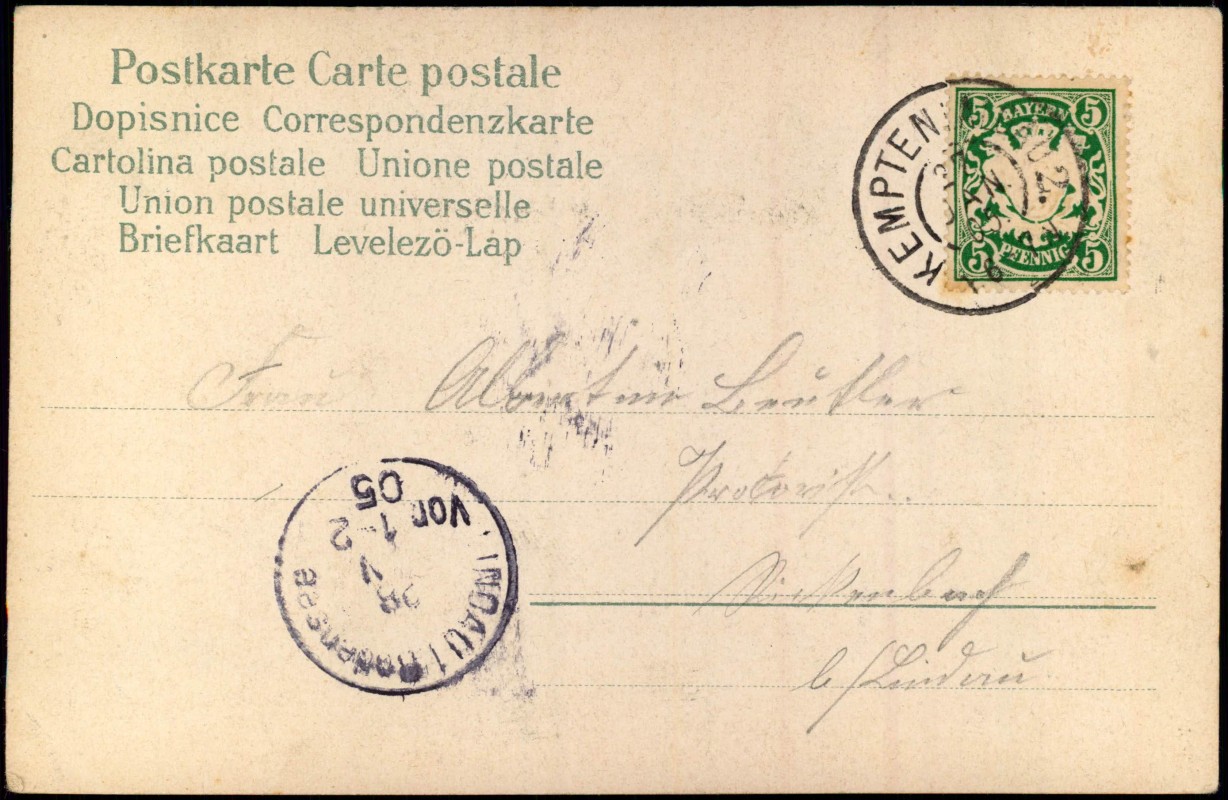 Postkarte Carte postale
Dopisnice Correspondenzkarte
Cartolina postale Unione postale
Union postale universelle
Briefkaart Levelezö-Lap
5 BAYERN 5
5 PFENNIG 5
KEMPTEN
Frau Albertine Beutler
b/Lindau
LINDAU i Bodensee
28
7
1-2
Vor
05